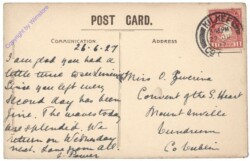 POST CARD.
COMMUNICATION.
ADDRESS
26.6.27
I am glad you had a
little time
Since you left every
Second day has been
fine. The waves today
are splendid. We
return on Wednesday
next. Love from all
Miss O.
Convent of the S. Heart
Mount Anville
Dundrum
Co Dublin